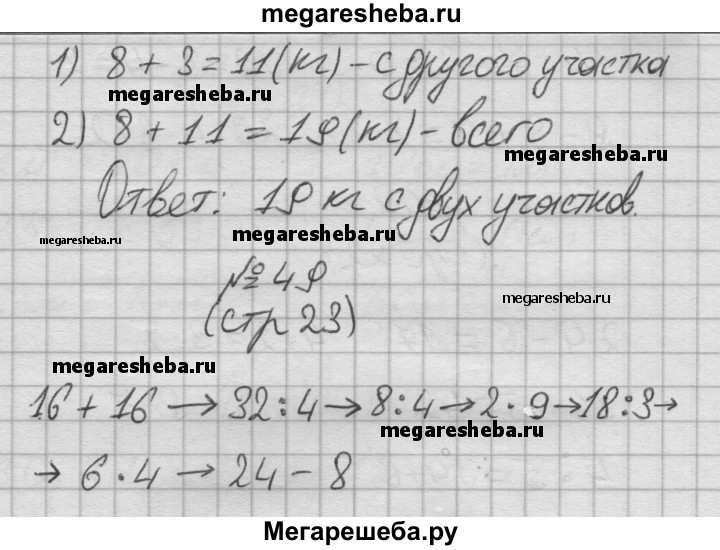 megaresheba.ru
1) 8 + 3 = 11 (кг) - с другого участка
megaresheba.ru
2) 8 + 11 = 19 (кг) - всего
megaresheba.ru
Ответ: 19 кг с двух участков.
megaresheba.ru
megaresheba.ru
№ 49
megaresheba.ru
(стр 23)
megaresheba.ru
16 + 16 → 32 : 4 → 8 : 4 → 2 · 9 → 18 : 3 →
megaresheba.ru
→ 6 · 4 → 24 - 8
Мегарешеба.ру